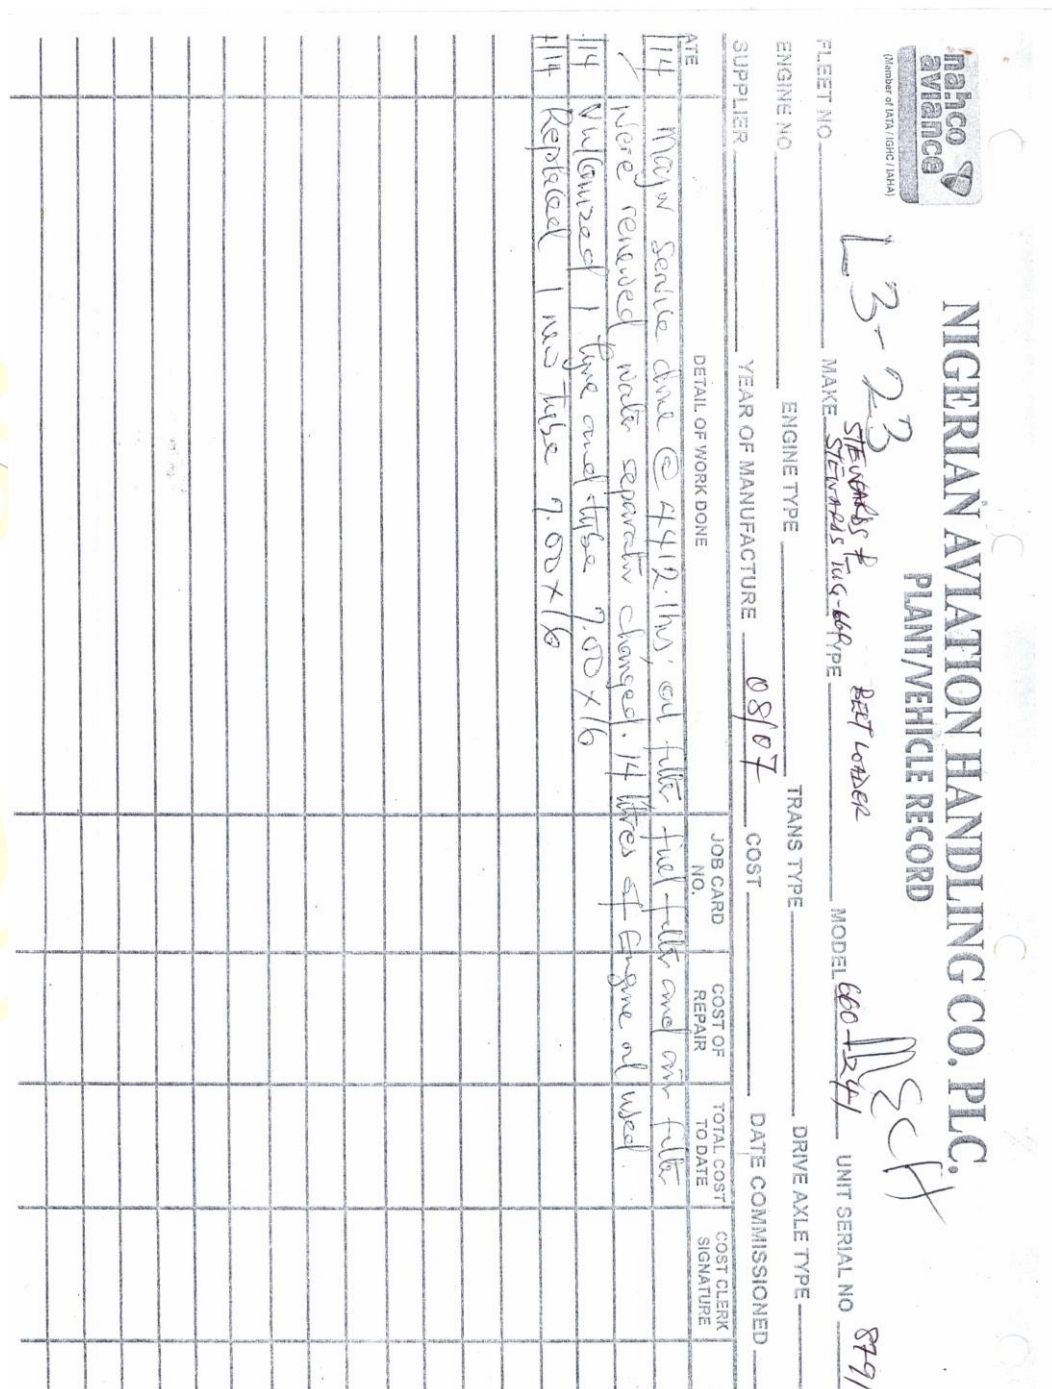 nahco
aviance
(Member of IATA / IGHC / IAHA)
NIGERIAN AVIATION HANDLING CO. PLC.
PLANT/VEHICLE RECORD
L3-23
MECH
STEWARDS &
BELT LOADER
FLEET NO. MAKE STEWARDS TUG-660 TYPE MODEL 660 UNIT SERIAL NO 879/
ENGINE NO. ENGINE TYPE TRANS TYPE DRIVE AXLE TYPE
SUPPLIER YEAR OF MANUFACTURE 08/07 COST DATE COMMISSIONED
ATE DETAIL OF WORK DONE JOB CARD NO. COST OF REPAIR TOTAL COST TO DATE COST CLERK SIGNATURE
/14 Major service done @ 4412.1hrs, oil filter fuel filter and air filter
were renewed, water separator changed. 14 litres of Engine oil used
/14 Vulcanized 1 tyre and tube 7.00x16
/14 Replaced 1 new tube 7.00x16